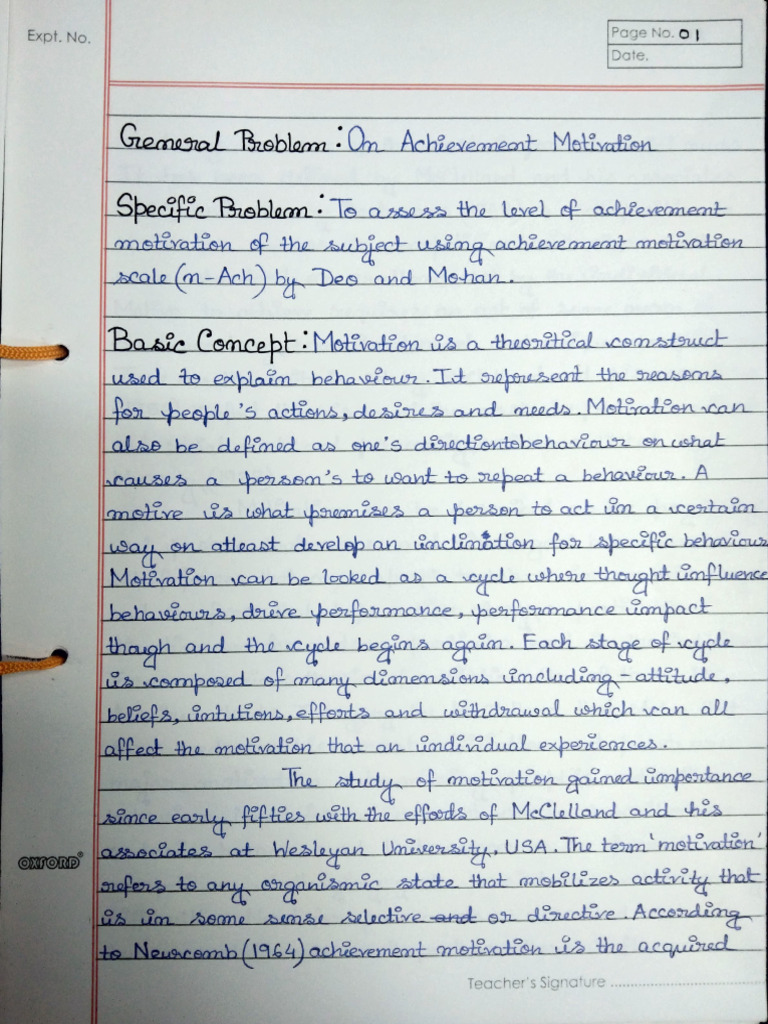 Expt. No.
Page No. 01
Date.
General Problem: On Achievement Motivation
Specific Problem: To assess the level of achievement
motivation of the subject using achievement motivation
scale (n-Ach) by Deo and Mohan.
Basic Concept: Motivation is a theoritical construct
used to explain behaviour. It represent the reasons
for people's actions, desires and needs. Motivation can
also be defined as one's direction to behaviour or what
causes a person's to want to repeat a behaviour. A
motive is what premises a person to act in a certain
way or atleast develop an inclination for specific behaviour
Motivation can be looked as a cycle where thought influence
behaviours, drive performance, performance impact
though and the cycle begins again. Each stage of cycle
is composed of many dimensions including - attitude,
beliefs, intutions, efforts and withdrawal which can all
affect the motivation that an individual experiences.
The study of motivation gained importance
since early fifties with the efforts of McClelland and his
associates at Wesleyan University, USA. The term 'motivation'
refers to any organismic state that mobilizes activity that
is in some sense selective and or directive. According
to Newcomb (1964) achievement motivation is the acquired
OXFORD
Teacher's Signature